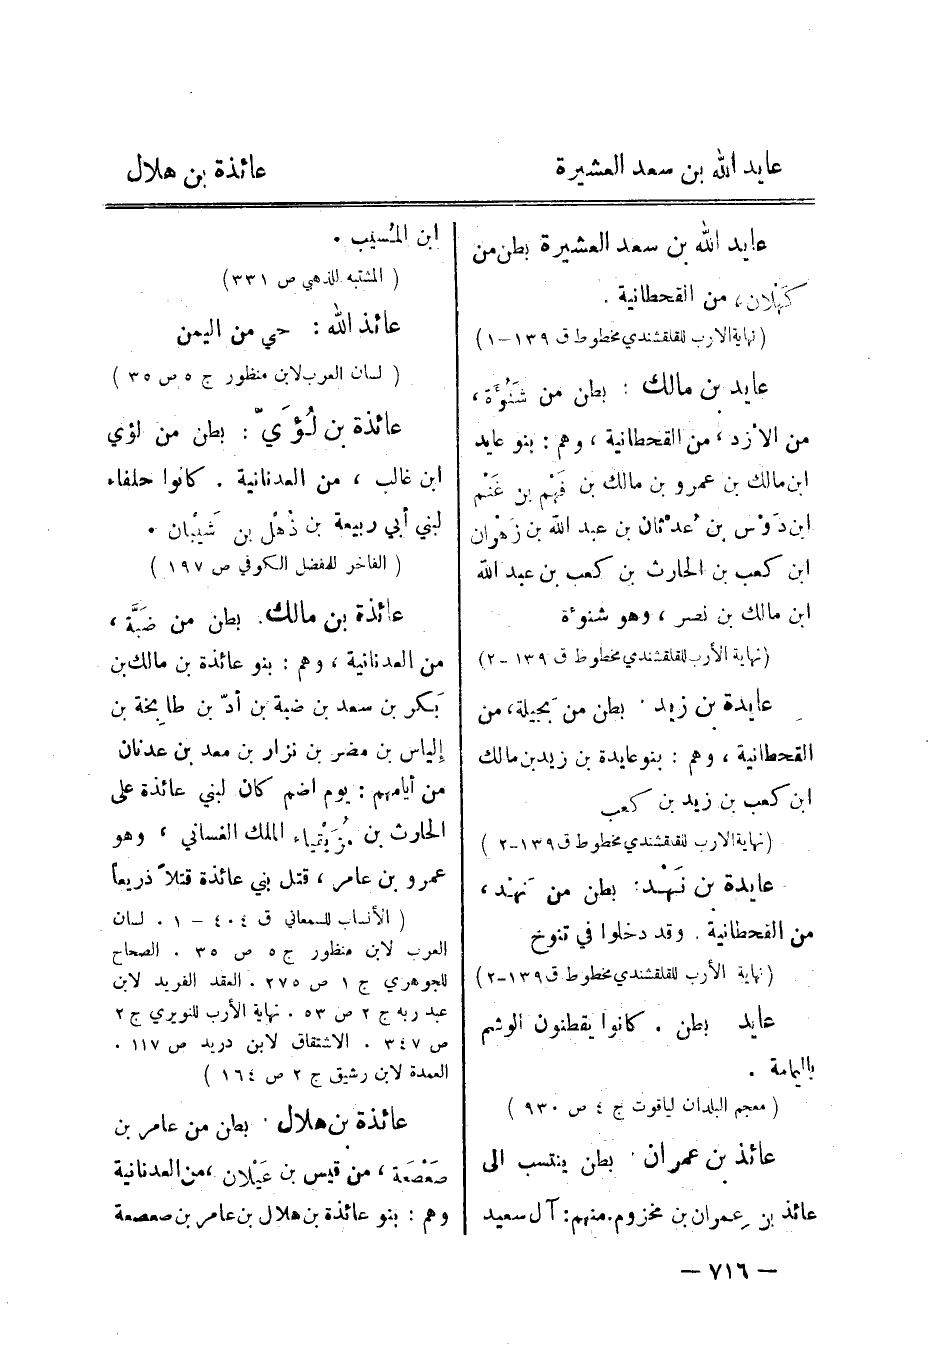 عايد الله بن سعد العشيرة
عائذة بن هلال
عايد الله بن سعد العشيرة بطن من
كَهْلان، من القحطانية .
(نهاية الارب للقلقشندي مخطوط ق ١٣٩-١)
عايد بن مالك : بطن من شَنُوْءَة ،
من الأزد ، من القحطانية ، وهم : بنو عايد
ابن مالك بن عمرو بن مالك بن فَهْم بن غَنْم
ابن دَوْس بن عُدْثان بن عبد الله بن زَهْران
ابن كعب بن الحارث بن كعب بن عبد الله
ابن مالك بن نصر ، وهو شنوءة
(نهاية الأرب للقلقشندي مخطوط ق ١٣٩-٢)
عايدة بن زيد . بطن من بَجيلة، من
القحطانية ، وهم : بنو عايدة بن زيد بن مالك
ابن كعب بن زيد بن كعب
(نهاية الارب للقلقشندي مخطوط ق ١٣٩-٢ )
عايدة بن نَهْد: بطن من نَهْد ،
من القحطانية . وقد دخلوا في تنوخ
(نهاية الأرب للقلقشندي مخطوط ق ١٣٩-٢)
عايد بطن . كانوا يقطنون الوشم
باليمامة .
( معجم البلدان لياقوت ج ٤ ص ٩٣٠ )
عائذ بن عمران . بطن ينتسب الى
عائذ بن عمران بن مخزوم. منهم: آل سعيد
ابن المُسَيَّب .
( المشتبه للذهبي ص ٣٣١)
عائذ الله : حي من اليمن
( لسان العرب لابن منظور ج ٥ ص ٣٥ )
عائذة بن لُؤَيّ : بطن من لؤي
ابن غالب ، من العدنانية . كانوا حلفاء
لبني أبي ربيعة بن ذُهْل بن شَيْبان .
( الفاخر للمفضل الكوفي ص ١٩٧ )
عائذة بن مالك. بطن من ضَبَّة ،
من العدنانية ، وهم : بنو عائذة بن مالك بن
بَكر بن سعد بن ضبة بن أدّ بن طابخة بن
إلياس بن مضر بن نزار بن معد بن عدنان
من أيامهم : يوم اضم كان لبني عائذة على
الحارث بن مُزَيْقياء الملك الغساني ، وهو
عمرو بن عامر ، قتل بني عائذة قتلاً ذريعاً
( الأنساب للسمعاني ق ٤٠٤ - ١ . لسان
العرب لابن منظور ج ٥ ص ٣٥ . الصحاح
للجوهري ج ١ ص ٢٧٥ . العقد الفريد لابن
عبد ربه ج ٢ ص ٥٣ . نهاية الأرب للنويري ج ٢
ص ٣٤٧ . الاشتقاق لابن دريد ص ١١٧ .
العمدة لابن رشيق ج ٢ ص ١٦٤ )
عائذة بن هلال . بطن من عامر بن
صَعْصَعَة ، من قيس بن عَيْلان ، من العدنانية
وهم : بنو عائذة بن هلال بن عامر بن صعصعة
— ٧١٦ —